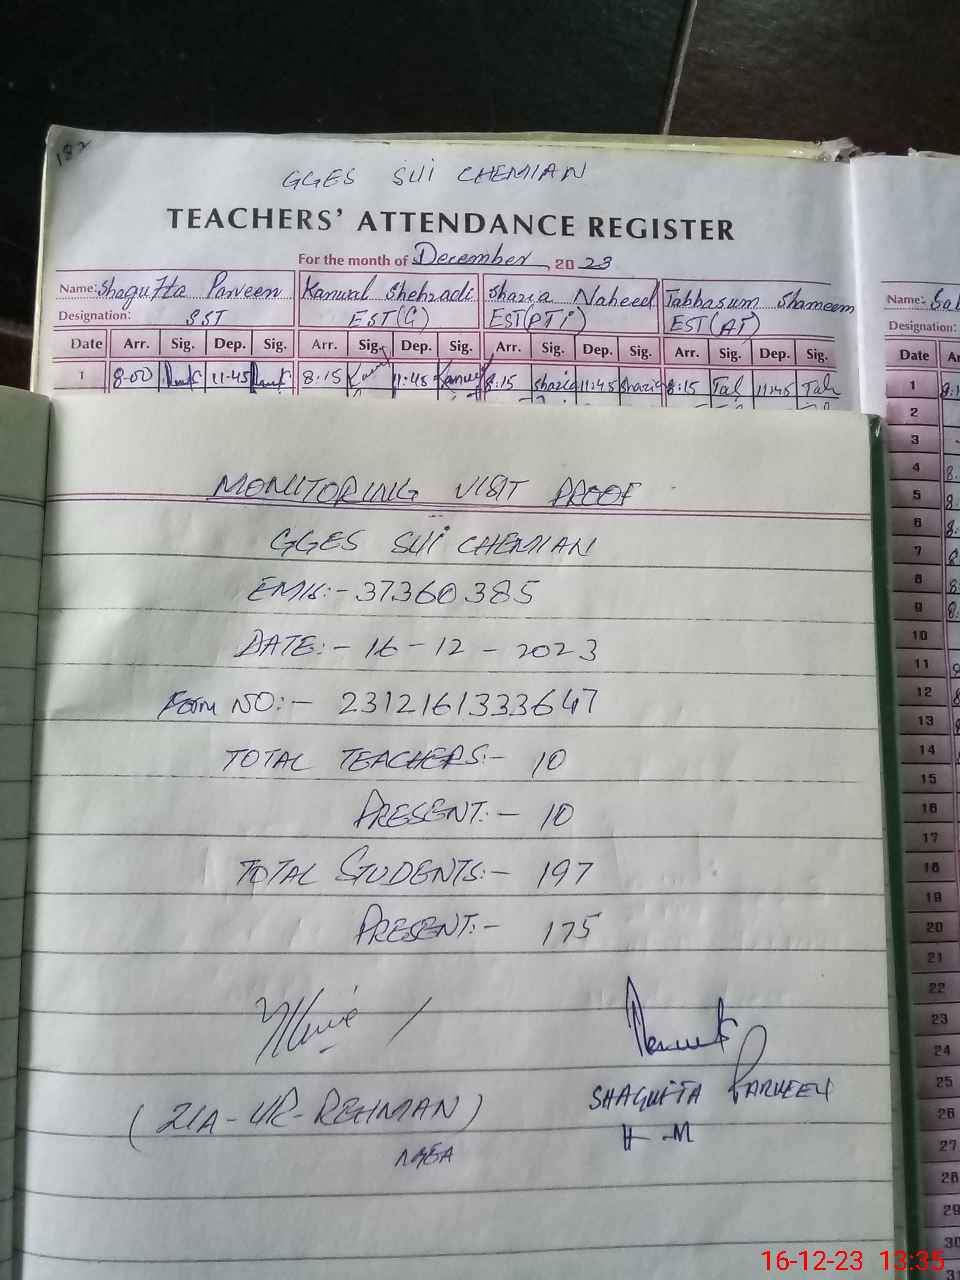 182
GGES SUI CHEMIAN
TEACHERS' ATTENDANCE REGISTER
For the month of December, 2023
Name: Shagufta Parveen Kanwal Shehzadi Shazia Naheed Tabbasum Shameem
Designation: SST EST(G) EST(PTI) EST(AT)
Date Arr. Sig. Dep. Sig. Arr. Sig. Dep. Sig. Arr. Sig. Dep. Sig. Arr. Sig. Dep. Sig.
1 8-00 11-45 8:15 11:45 Kanwal 8:15 Shazia 11:45 Shazia 8:15 Tab 11:45 Tab
Name:
Designation:
Date
1
2
3
4
5
6
7
8
9
10
11
12
13
14
15
16
17
18
19
20
21
22
23
24
25
26
27
28
29
30
31
MONITORING VISIT PROOF
GGES SUI CHEMIAN
EMIS:- 37360385
DATE:- 16-12-2023
Form NO:- 2312161333647
TOTAL TEACHERS:- 10
PRESENT:- 10
TOTAL STUDENTS:- 197
PRESENT:- 175
(ZIA-UR-REHMAN)
MEA
SHAGUFTA PARVEEN
H.M
16-12-23 13:35